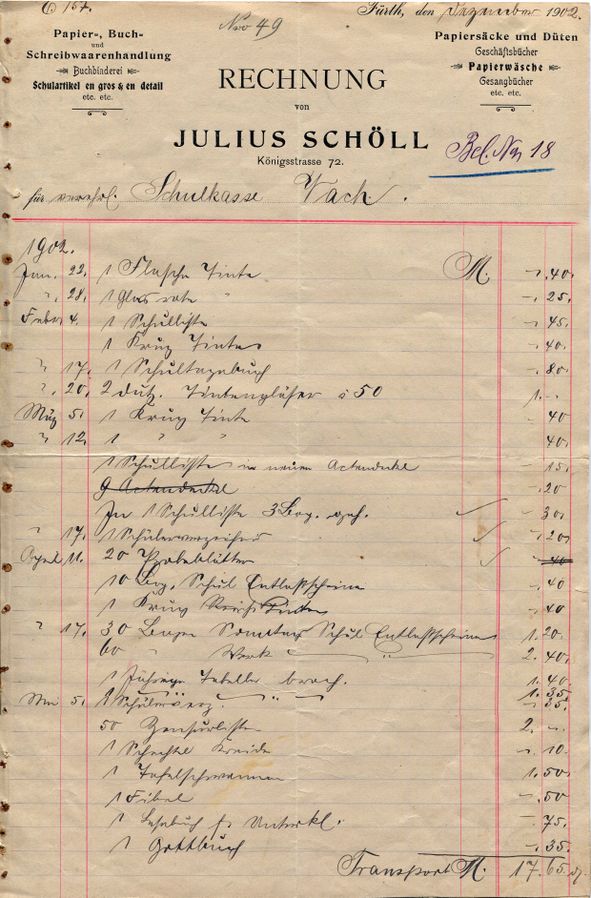 Fürth, den Dezember 1902.
No 49
Papier-, Buch-
und
Schreibwaarenhandlung
Buchbinderei
Schulartikel en gros & en detail
etc. etc.
RECHNUNG
von
JULIUS SCHÖLL
Königsstrasse 72.
Papiersäcke und Düten
Geschäftsbücher
Papierwäsche
Gesangbücher
etc. etc.
Bel. No 18
für verehrl. Schulkasse Vach.
1902.
Jan. 22. 1 Flasche Tinte M. -.40.
". 28. 1 Glas rote " -.25.
Febr. 4. 1 Schulliste -.45.
1 Krug Tinte -.40.
" 17. 1 Schultagebuch -.80.
". 20. 2 Dutz. Tintengläser à 50 1.-
März 5. 1 Krug Tinte -.40
" 12. 1 " " 40.
1 Schulliste in neuen Actendeckel -.15.
9 Actendeckel -.20
In 1 Schulliste 3 Bog. -.30.
" 17. 1 -.20
April 11. 20 Probeblätter -.40
10 Bog. Schul Entlaßscheine -.40
1 Krug Tinte -.40
" 17. 30 Bogen Sonntag Schul Entlaßscheine 1.20.
60 " Werk " 2.40.
1 Tabelle 1.40.
1.35.
Mai 5. 1 Schülerverz. " -.35.
50 Zensurliste 2.-
1 Schachtel Kreide -.10.
1 Tafelschwamm 1.50
1 Fibel -.50
1 Lesebuch f. Unterkl. -.75.
1 -.35.
Transport M. 17.65